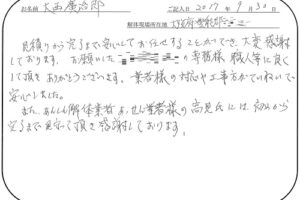 お名前 大西廣治郎 ご記入日 2017年 9月30日
解体現場所在地
見積りから完了まで安心してお任せすることができ、大変感謝
しております。お願いした の専務様、職人等に良く
して頂きありがとうございます。業者様の対応や工事がていねいで
安心しました。
また、あんしん解体業者 せん業者様の高見氏には、初めから
完了まで見守って頂き感謝しております。